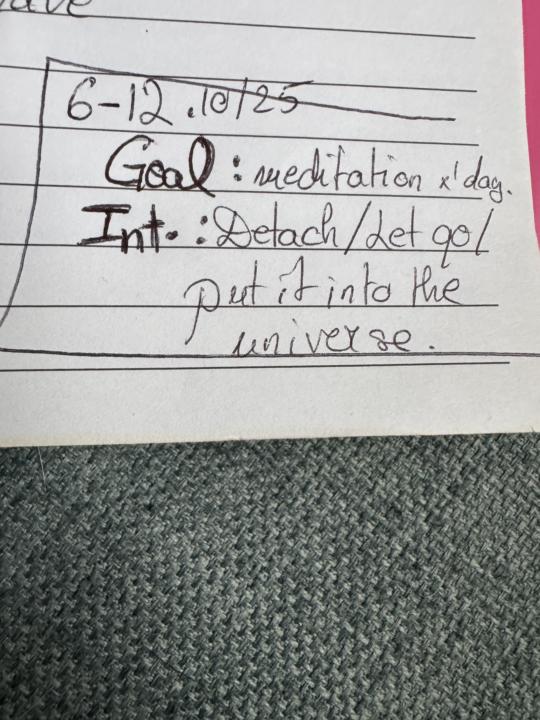 6-12.10/25
Goal: meditation x' day.
Int.: Detach/Let go/
put it into the
universe.